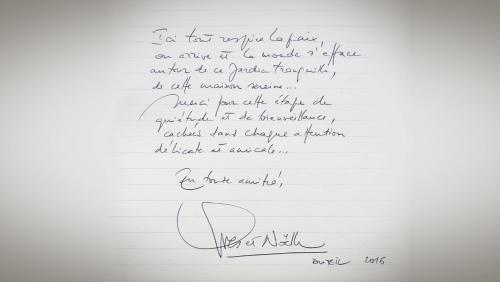 Ici tout respire la paix,
on arrive et le monde s'efface
autour de ce jardin tranquille,
de cette maison sereine...
Merci pour cette étape de
quiétude et de bienveillance,
cachées dans chaque attention
délicate et amicale...
En toute amitié,
et Noëlle
2016